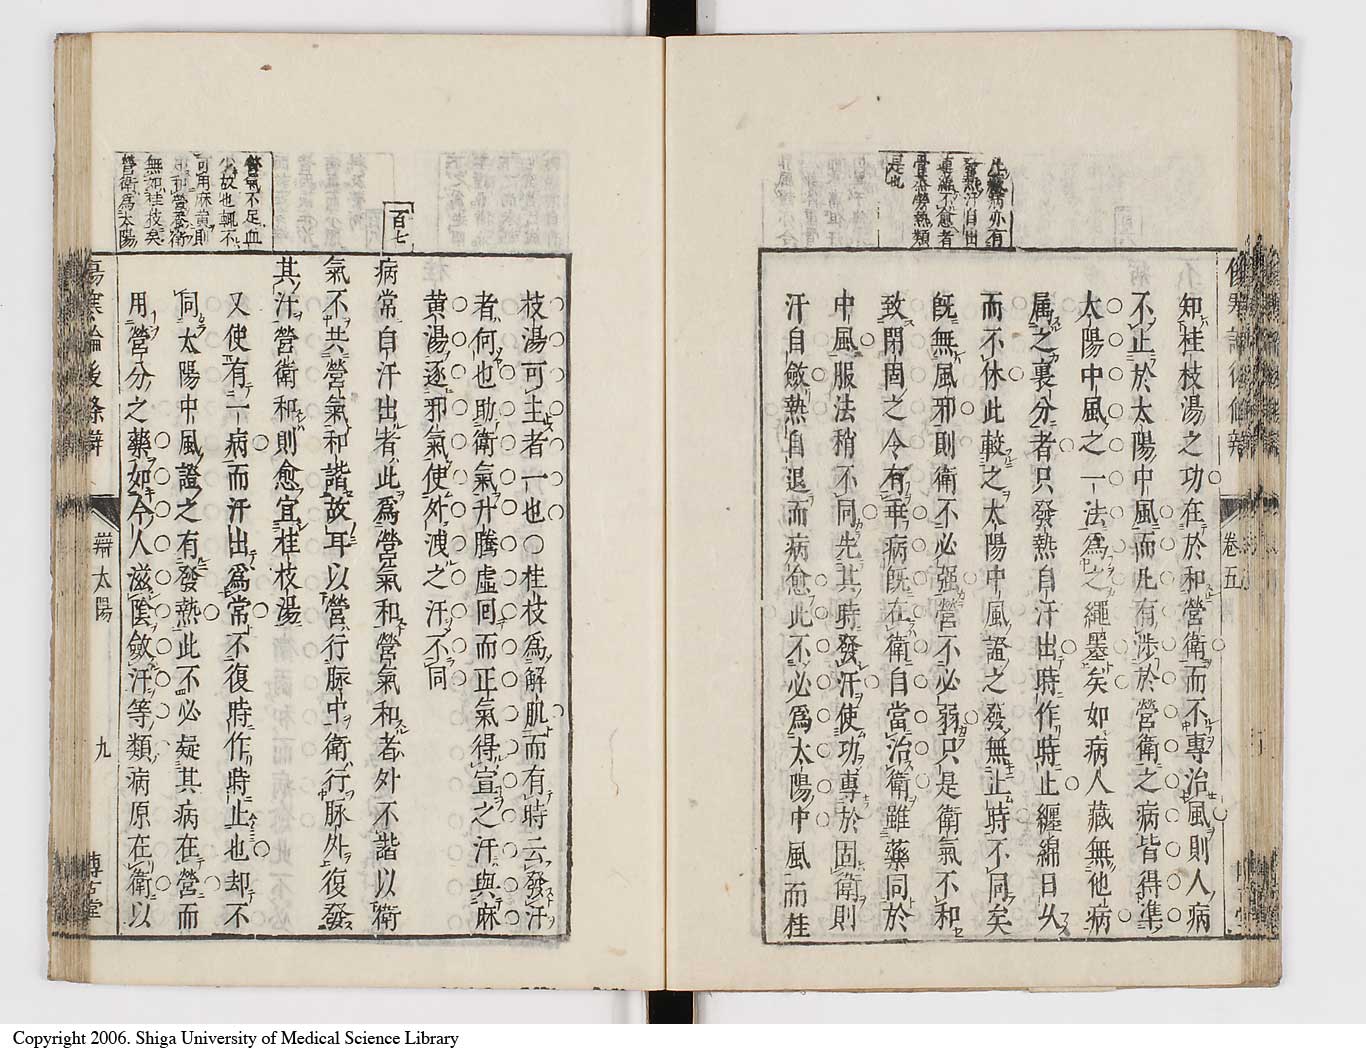 傷寒論後條辨
卷五
知桂枝湯之功在於和營衛而不專治風則人病
不止於太陽中風而凡有涉於營衛之病皆得準
太陽中風之一法為之繩墨矣如病人藏無他病
属之裏分者只發熱自汗出時作時止纏綿日久
而不休此較之太陽中風證之發無止時不同矣
既無風邪則衛不必强營不必弱只是衛氣不和
致閉固之令有乖病既在衛自當治衛雖藥同於
中風服法稍不同先其時發汗使功專於固衛則
汗自斂熱自退而病愈此不必為太陽中風而桂
亦有
發熱汗自出
連綿不愈者
骨蒸勞熱類
是也
枝湯可主者一也○桂枝為解肌而有時云發汗
者何也助衛氣升騰虛回而正氣得宣之汗與麻
黄湯逐邪氣使外洩之汗不同
百七
病常自汗出者此爲營氣和營氣和者外不諧以衛
氣不共營氣和諧故耳以營行脉中衛行脉外復發
其汗營衛和則愈宜桂枝湯
又使有一病而汗出爲常不復時作時止也却不
同太陽中風證之有發熱此不必疑其病在營而
用營分之藥如今人滋陰斂汗等類病原在衛以
營氣不足血
少故也輒不
可用麻黄則
並和營養衛
無如桂枝矣
營衛爲太陽
傷寒論後條辯
辯太陽
九
博古堂
Copyright 2006. Shiga University of Medical Science Library